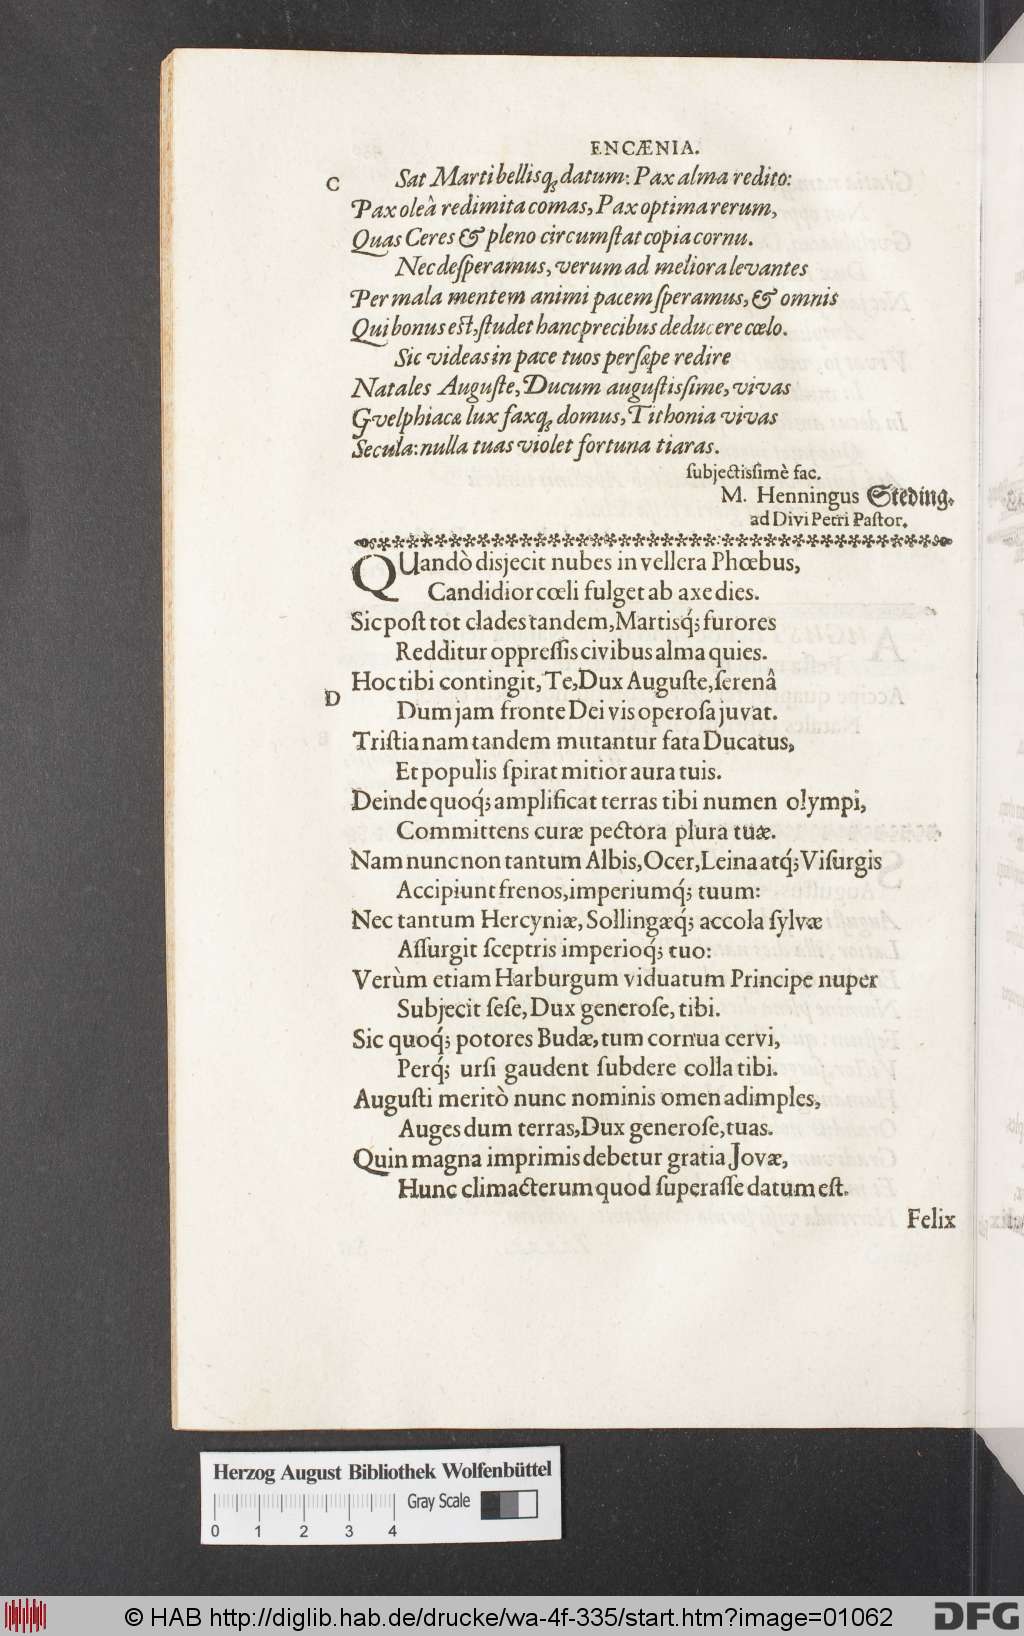 ENCÆNIA.
C Sat Marti bellisq; datum: Pax alma redito:
Pax oleâ redimita comas, Pax optima rerum,
Quas Ceres & pleno circumſtat copia cornu.
Nec deſperamus, verum ad meliora levantes
Per mala mentem animi pacem ſperamus, & omnis
Qui bonus eſt, ſtudet hanc precibus deducere cœlo.
Sic videas in pace tuos perſæpe redire
Natales Auguſte, Ducum auguſtiſsime, vivas
Gvelphiacæ lux faxq; domus, Tithonia vivas
Secula: nulla tuas violet fortuna tiaras.
ſubjectiſsimè fac.
M. Henningus Steding.
ad Divi Petri Paſtor.
QUandò disjecit nubes in vellera Phœbus,
Candidior cœli fulget ab axe dies.
Sic poſt tot clades tandem, Martisq́; furores
Redditur oppreſſis civibus alma quies.
Hoc tibi contingit, Te, Dux Auguſte, ſerenâ
D Dum jam fronte Dei vis operoſa juvat.
Triſtia nam tandem mutantur fata Ducatus,
Et populis ſpirat mitior aura tuis.
Deinde quoq́; amplificat terras tibi numen olympi,
Committens curæ pectora plura tuæ.
Nam nunc non tantum Albis, Ocer, Leina atq́; Viſurgis
Accipiunt frenos, imperiumq́; tuum:
Nec tantum Hercyniæ, Sollingæq́; accola ſylvæ
Aſſurgit ſceptris imperioq́; tuo:
Verùm etiam Harburgum viduatum Principe nuper
Subjecit ſeſe, Dux generoſe, tibi.
Sic quoq́; potores Budæ, tum cornua cervi,
Perq́; urſi gaudent ſubdere colla tibi.
Auguſti meritò nunc nominis omen adimples,
Auges dum terras, Dux generoſe, tuas.
Quin magna imprimis debetur gratia Jovæ,
Hunc climacterum quod ſuperaſſe datum eſt.
Felix
Herzog August Bibliothek Wolfenbüttel
Gray Scale
0 1 2 3 4
© HAB http://diglib.hab.de/drucke/wa-4f-335/start.htm?image=01062
DFG